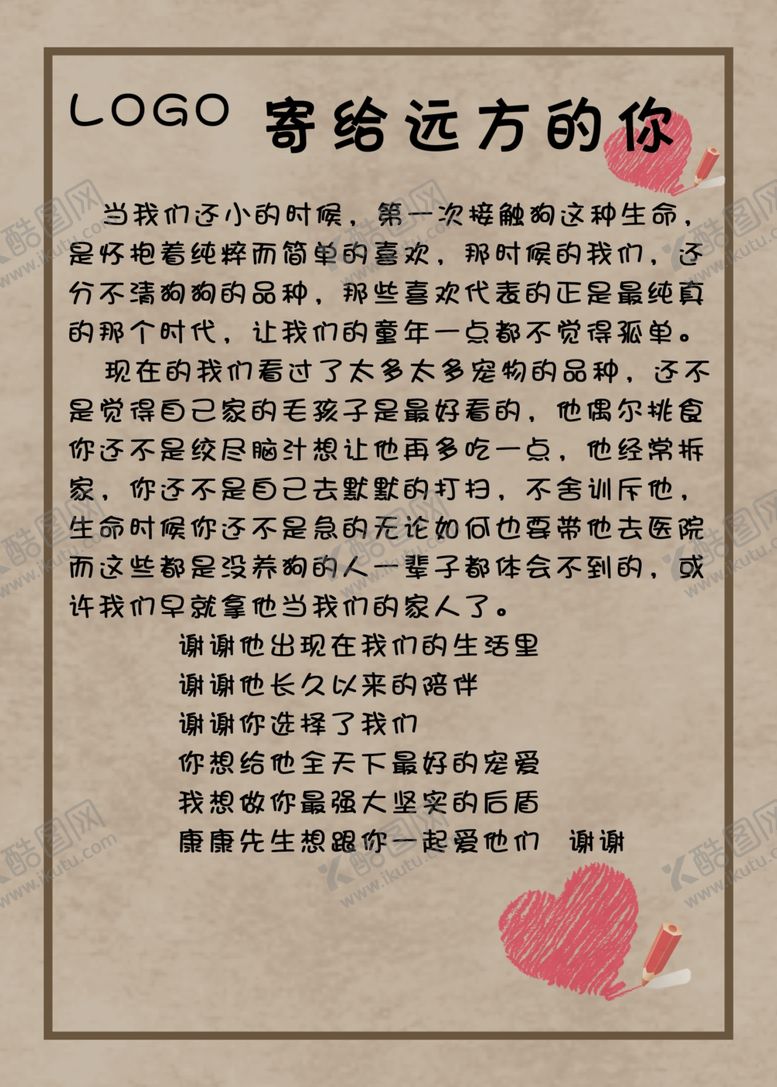 LOGO 寄给远方的你
当我们还小的时候，第一次接触狗这种生命，
是怀抱着纯粹而简单的喜欢，那时候的我们，还
分不清狗狗的品种，那些喜欢代表的正是最纯真
的那个时代，让我们的童年一点都不觉得孤单。
现在的我们看过了太多太多宠物的品种，还不
是觉得自己家的毛孩子是最好看的，他偶尔挑食
你还不是绞尽脑汁想让他再多吃一点，他经常拆
家，你还不是自己去默默的打扫，不舍训斥他，
生命时候你还不是急的无论如何也要带他去医院
而这些都是没养狗的人一辈子都体会不到的，或
许我们早就拿他当我们的家人了。
谢谢他出现在我们的生活里
谢谢他长久以来的陪伴
谢谢你选择了我们
你想给他全天下最好的宠爱
我想做你最强大坚实的后盾
康康先生想跟你一起爱他们 谢谢
酷图网
www.ikutu.com